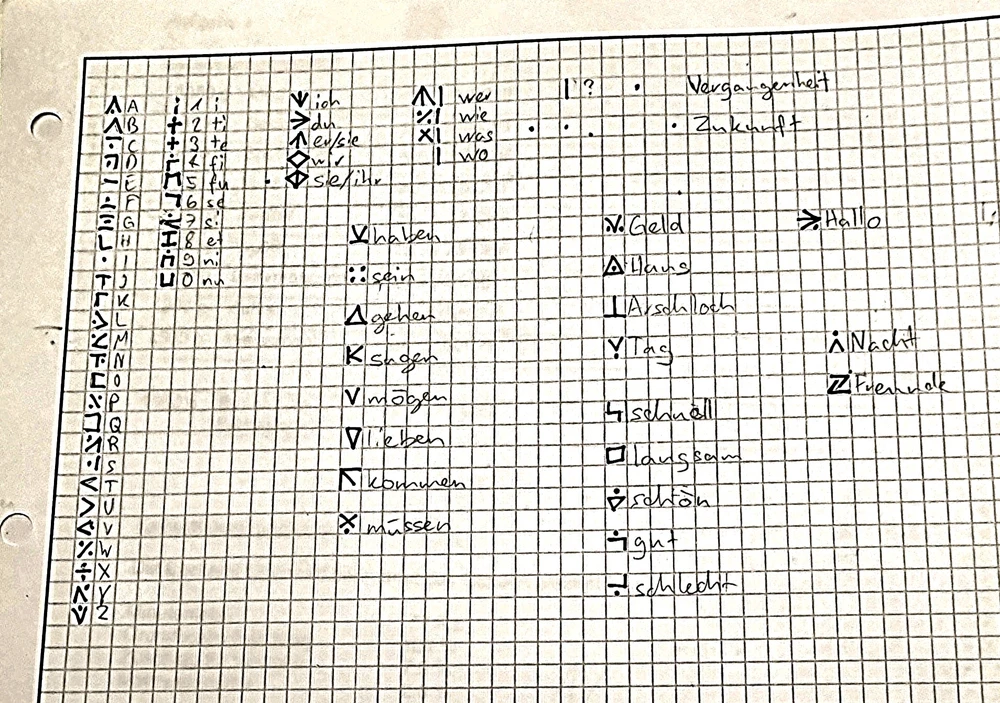 A 1 i ich wer ? Vergangenheit
B 2 ti du wie Zukunft
C 3 te er/sie was
D 4 fi wir wo
E 5 fu sie/ihr
F 6 se
G 7 si haben Geld Hallo
H 8 et
I 9 ni sein Haus
J 0 nu
K
L gehen Arschloch
M
N sagen Tag Nacht
O
P mögen Freunde
Q
R lieben schnell
S
T kommen langsam
U
V müssen schön
W
X gut
Y
Z schlecht